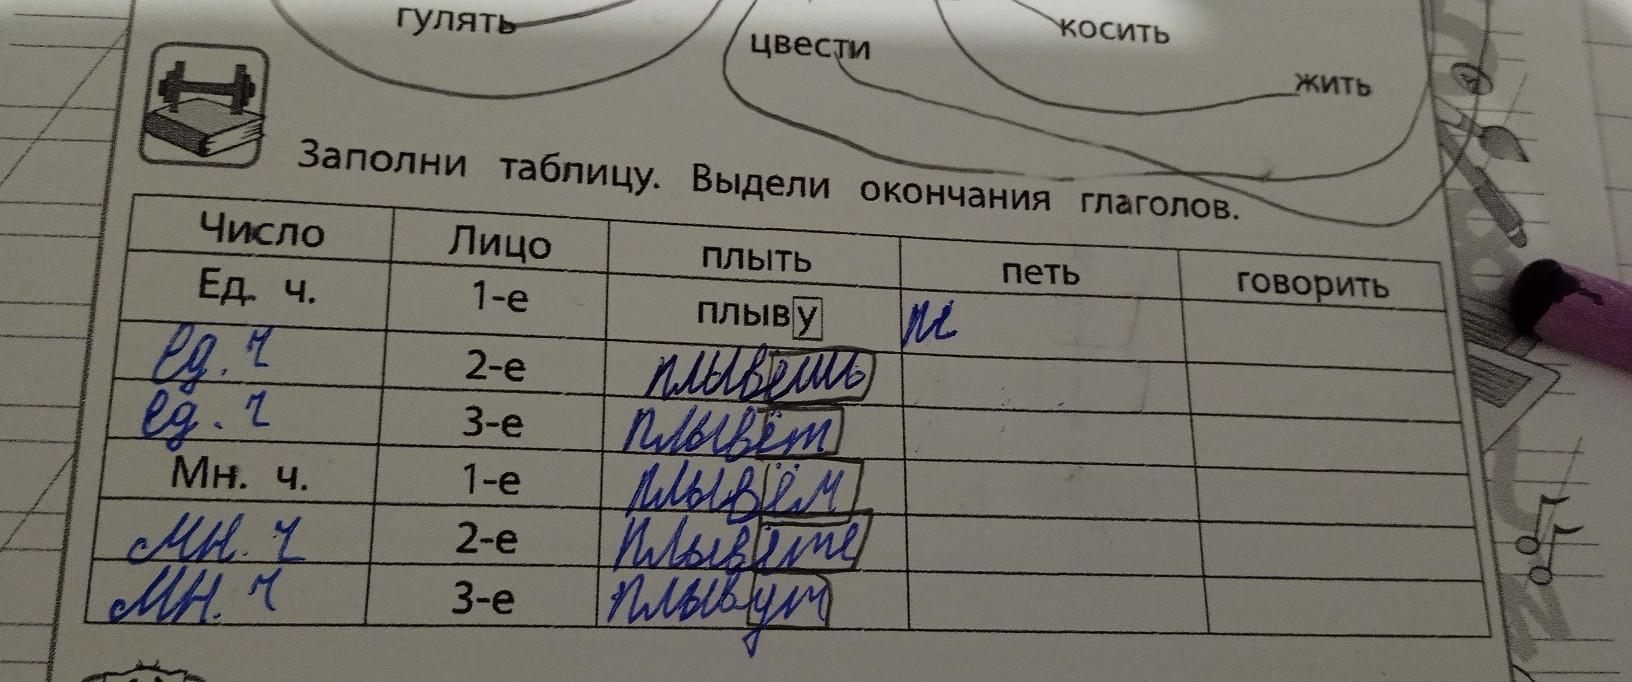 гулять
цвести
косить
жить
Заполни таблицу. Выдели окончания глаголов.
Число Лицо плыть петь говорить
Ед. ч. 1-е плыву
ед. ч 2-е плывёшь
ед. ч 3-е плывёт
Мн. ч. 1-е плывём
мн. ч 2-е плывёте
мн. ч 3-е плывут